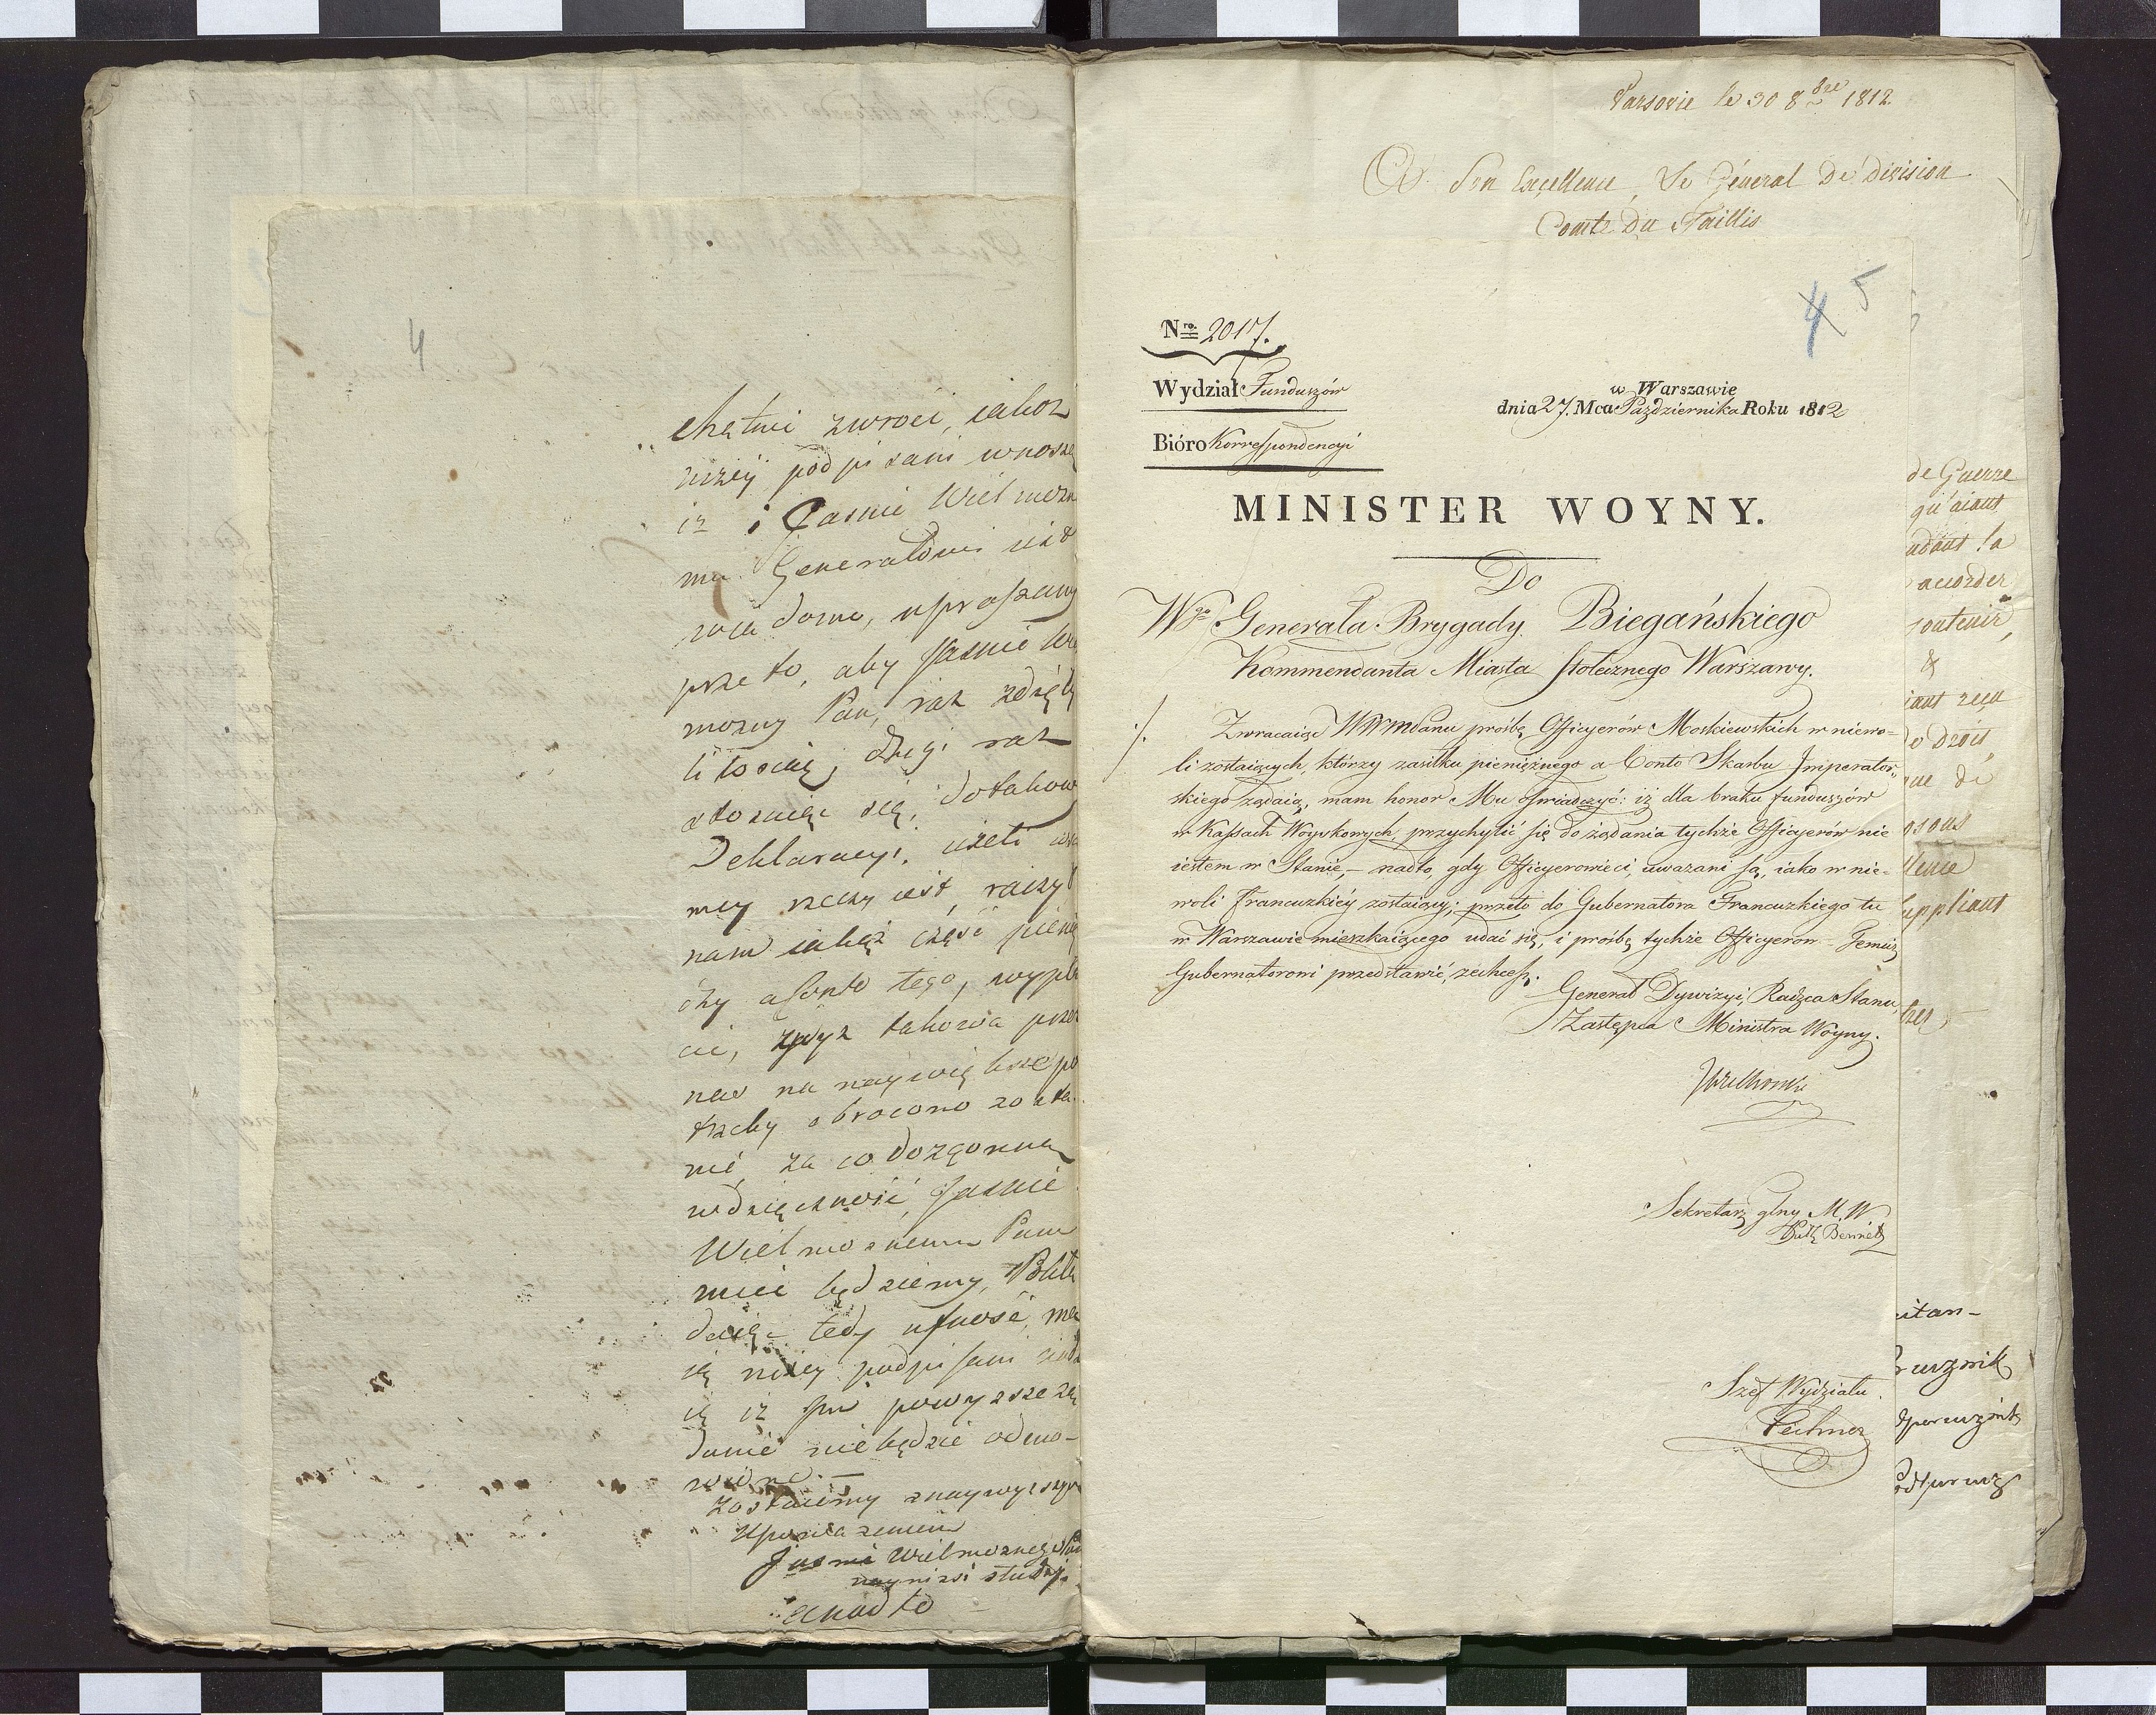 4
chętni zwroci, iakoz
niżey podpisani wnoszą
iż i Jasnie Wielmożn
mu Generałowi iest
wiadomo, upraszamy
przeto, aby Jasnie We
możny Pan, raz zdięty
litoscią, drugi raz
stosuiąc się, do takow
Deklaracyi, ieżeli
mey rzeczy iest, raczył
nam iakąż część pienię
dzy a Conto tego, wypła
cić, gdyż takowa przez
nas na naywiększe po
trzeby obrocono zosta
nie, za co dozgonną
wdzięczność, Jasnie
Wielmożnemu Panu
mieć będziemy, Pokła
daiąc tedy ufność, ma
ią niżey podpisani
ię iż powyższe żą
danie nie będzie odmo-
wione. —
Zostaiemy z naywyższym
Uposzażeniem
Jasnie Wielmożnego Pan
nayniżsi słudzy
Varsovie le 30 8bre 1812.
A Son Excellence, Le Géneral De Division
Comte Du Taillis
4 5
Nro. 2017.
Wydział Funduszów
w Warszawie
dnia 27. Mca Październīka Roku 1812
Bióro Korrespondencyi
MINISTER WOYNY.
Do
Wgo Generała Brygady Biegańskiego
Kommendanta Miasta Stołecznego Warszawy.
./. Zwracaiąc WWMPanu prośbę Officyerów Moskiewskich w niewo-
li zostaiących, którzy zasiłku pieniężnego a Conto Skarbu Imperator-
skiego żądaią, mam honor Mu oświadczyć: iż dla braku funduszów
w Kassach Woyskowych, przychylić się do żądania tychże Officyerów nie
iestem w Stanie, – nadto, gdy Officyerowie ci, uważani są, iako w nie-
woli Francuzkiéy zostaiący; przeto do Gubernatora Francuzkiego tu
w Warszawie mieszkaiącego udać się, i prośbę tychże Officyerów – Temuż
Gubernatorowi przedstawić, zechcesz.
Generał Dywizyi, Radzca Stanu,
Zastępca Ministra Woyny.
Wielhorski
Sekretarz głny M. W
Bennet
Szef Wydziału.
de Guerre
qu'aiant
la
accorder
soutenir,
&
iant reçu
Droit,
de
uppliant
itan-